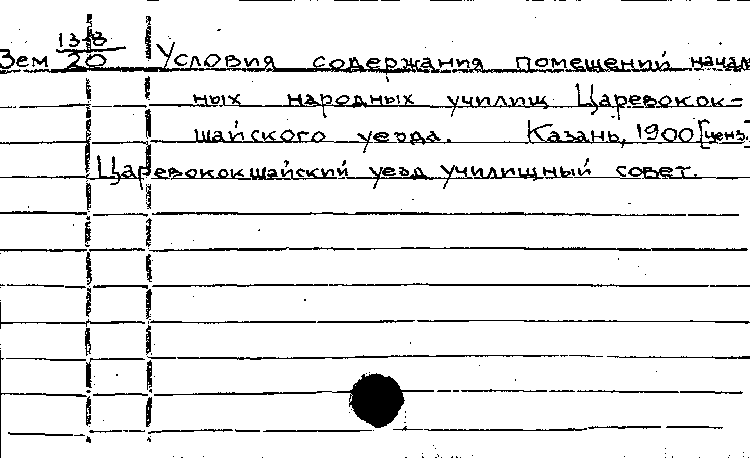 Зем 13-8/20 Условия содержания помещений начал
ных народных училищ Царевокок-
шайского уезда. Казань, 1900 [ценз.]
Царевококшайский уезд училищный совет.